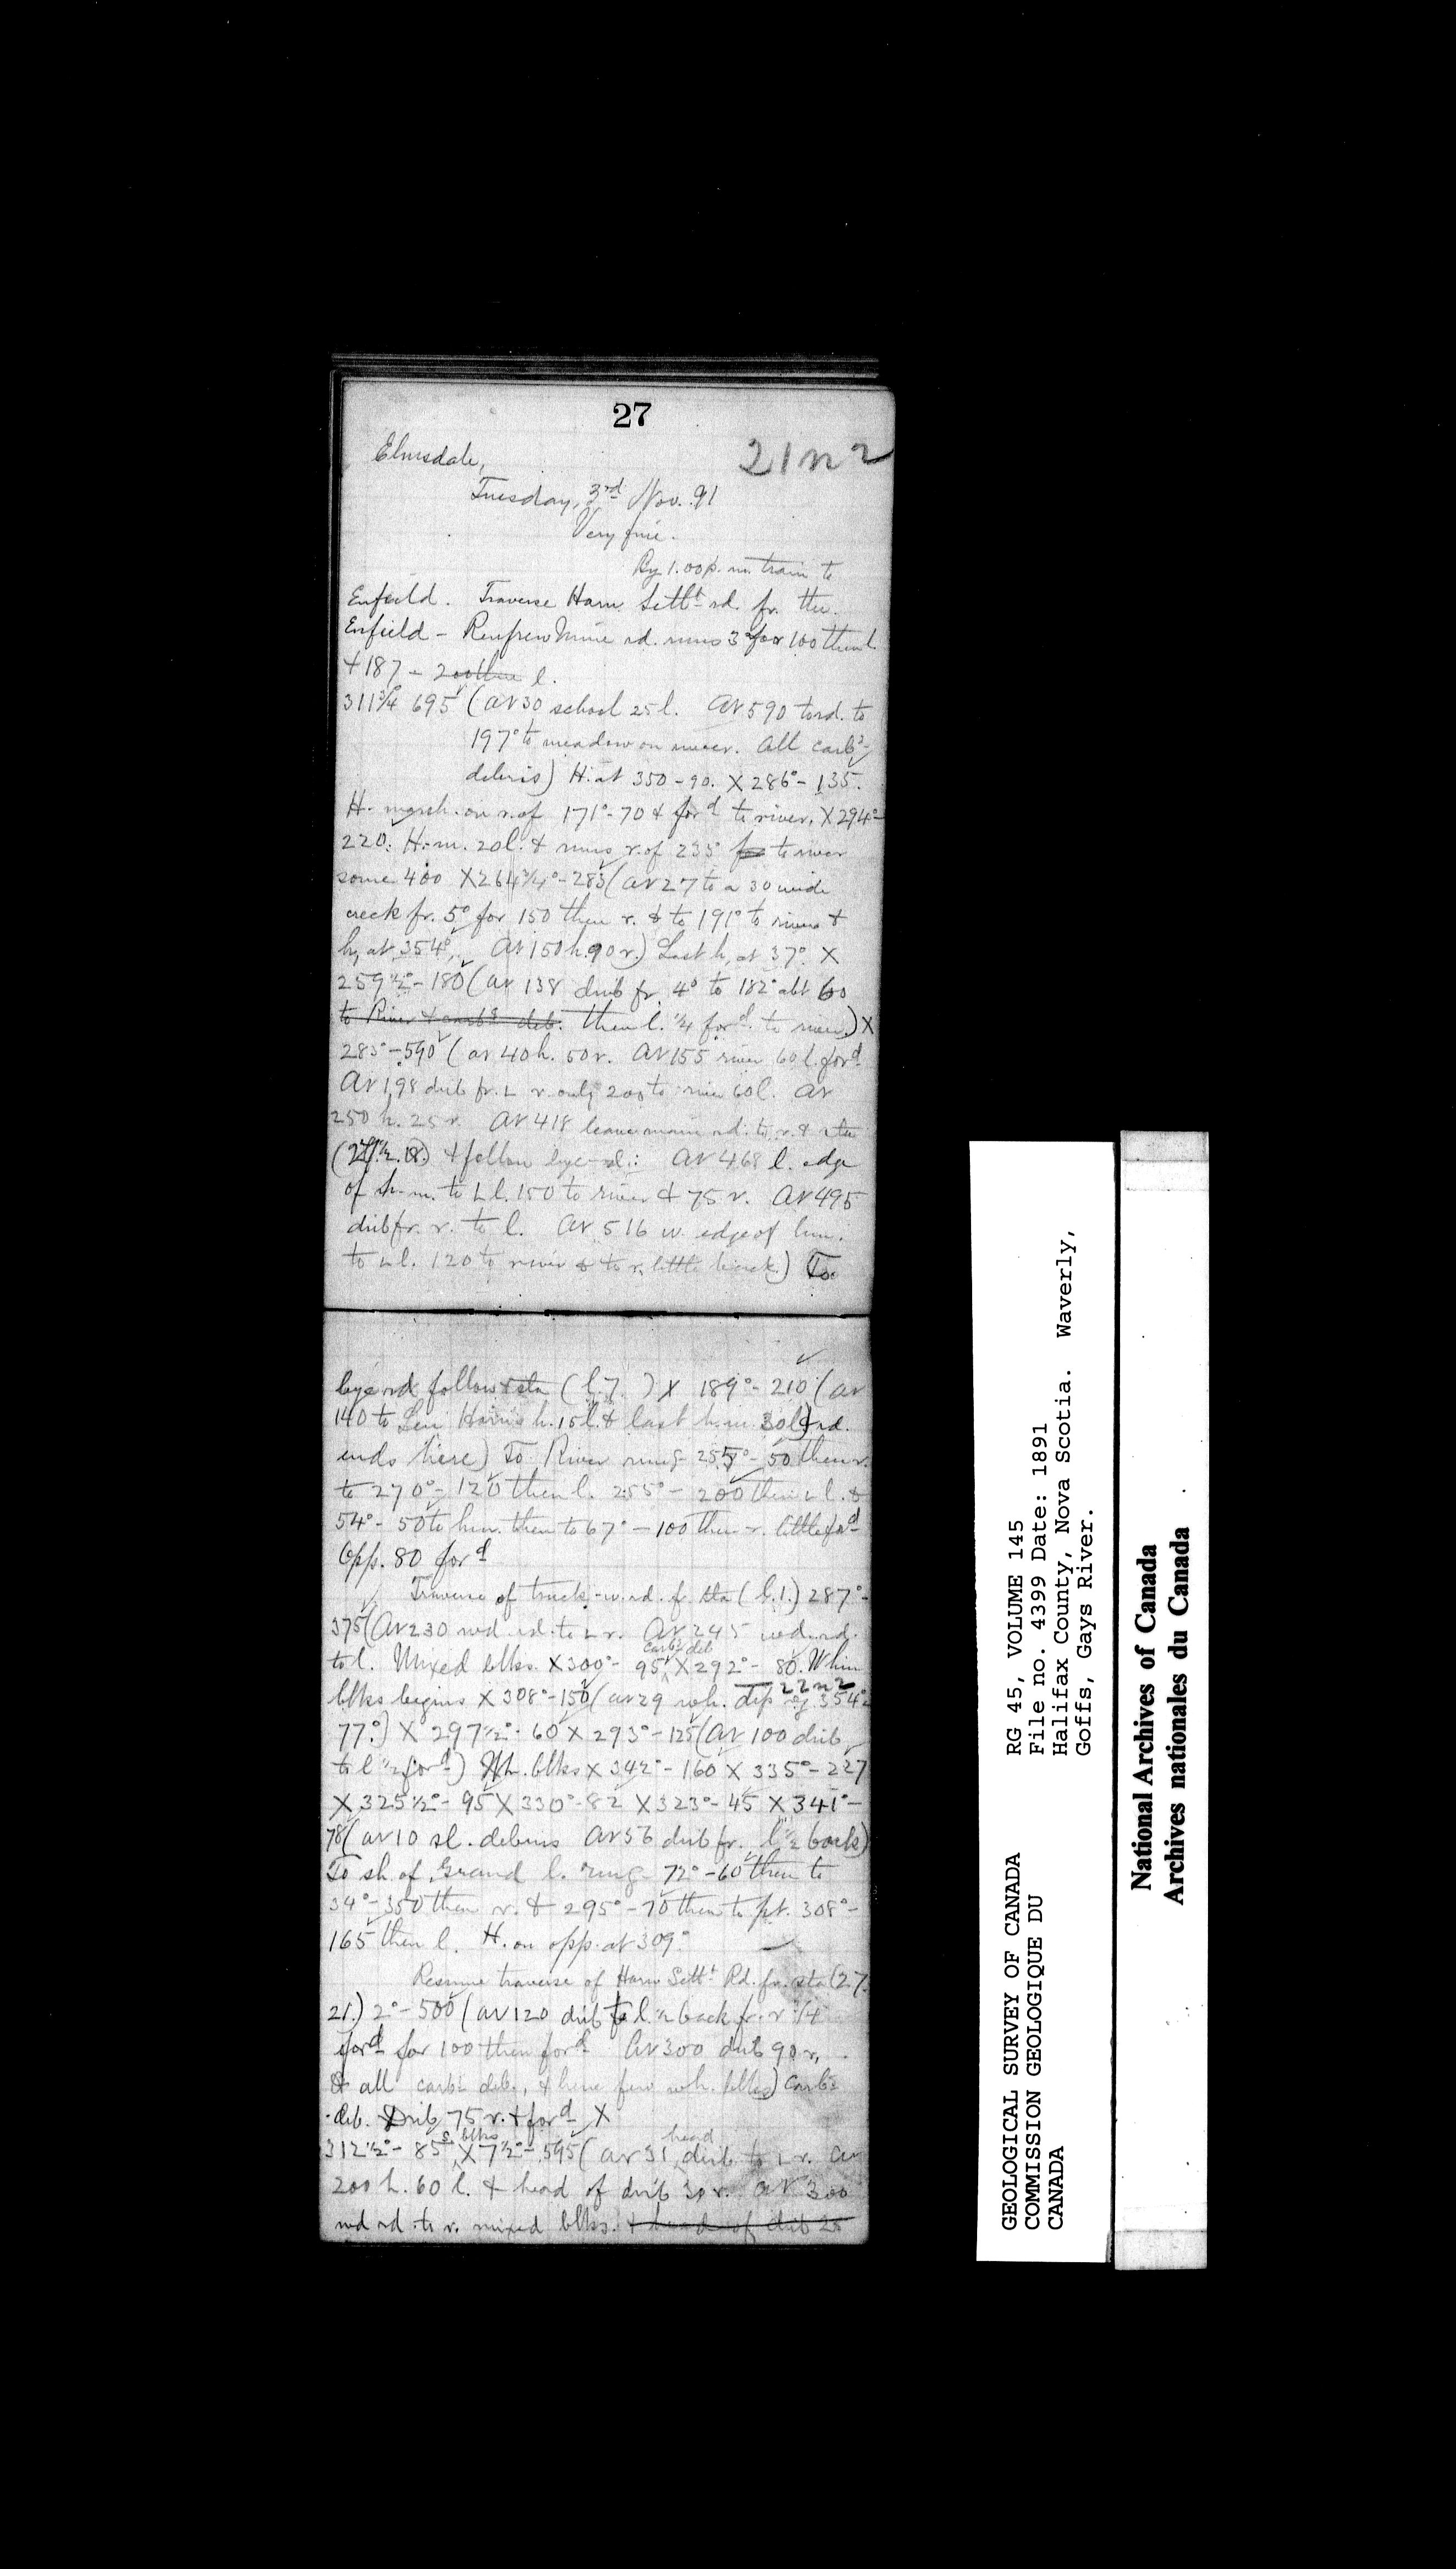 27
21n2
Elmsdale,
Tuesday, 3rd Nov. 91
Very fine.
By 1.00 p.m. train to
Enfield. Traverse Harn Settt rd. fr. the
Enfield - Renfrew Mine rd. runs 3° for 100 then l.
+ 187 - 200 then l.
311¾° 695 (At 30 school 25 l. At 590 to rd. to
197° to meadow on river. All carbs
debris) H. at 350 - 90. X 286° - 135.
H. marsh on r. of 171° - 70 & ford to river. X 294° -
220: H. m. 20 l. & runs r. of 235° to river
some 400 X 264¾° - 283 (At 27 to a 30 wide
creek fr. 5° for 150 then r. & to 191° to river &
h. at 354°. At 150 h. 90 r.) Last h. at 37° X
259½° - 180 (at 138 drib fr. 4° to 182° abt 60
to River & carbs deb. then l. ¼ ford to river) X
285° - 590 (at 40 h. 50 r. At 155 river 60 l. ford
At 198 drib fr. L r. only 200 to river 60 l. At
250 h. 25 r. At 418 leave main rd. to r. & sta
& follow bye-rd: At 468 l. edge
of h. m. to L l. 150 to river & 75 r. At 495
drib fr. r. to l. At 516 w. edge of hm.
to L l. 120 to river & to r. little back.) To
bye rd follow sta (l. 7. ) X 189° - 210 (at
140 to Len Harns h. 15 l. & last h. m. 30 l & rd.
ends here) To River rung 255° - 50 then r.
to 270° - 120 then l. 255° - 200 then L l. &
54° - 50 to hm. then to 67° - 100 then r. little ford
Opp. 80 ford
Traverse of truck-w. rd. f. sta (l. 1.) 287° -
375 (At 230 wd rd. to L r. At 245 wd rd.
to l. Mixed blks. X 300° - 95 carbs deb X 292° - 80. Whin
22n2
blks begins X 308° - 150 (at 29 wh. dip 354°
77°) X 297½° - 60 X 293° - 125 (At 100 drib
to l ½ ford) Wh. blks X 342° - 160 X 335° - 227
X 325½° - 95 X 330° - 82 X 323° - 45 X 341° -
78 (at 10 sl. debris At 56 drib fr. l ½ back)
To sh. of Grand l. rung 72° - 60 then to
34° - 350 then r. & 295° - 70 then to pt. 308° -
165 then l. H. on opp. at 309°
Resume traverse of Harn Settt Rd. fr. sta (27.
21.) 2° - 500 (at 120 drib to l. ½ back fr. r ¼
ford for 100 then ford At 300 drib 90 r,
& all carbs deb., & here few wh. blks) Carbs
deb. Drib 75 r. & ford X
312½° - 85 s. blks X 7½° - 595 (at 31 head drib to L r. At
200 h. 60 l. & head of drib 30 r. At 300
wd rd. to r. mixed blks. & head of drib 25
GEOLOGICAL SURVEY OF CANADA
COMMISSION GEOLOGIQUE DU
CANADA
RG 45, VOLUME 145
File no. 4399 Date: 1891
Halifax County, Nova Scotia. Waverly,
Goffs, Gays River.
National Archives of Canada
Archives nationales du Canada